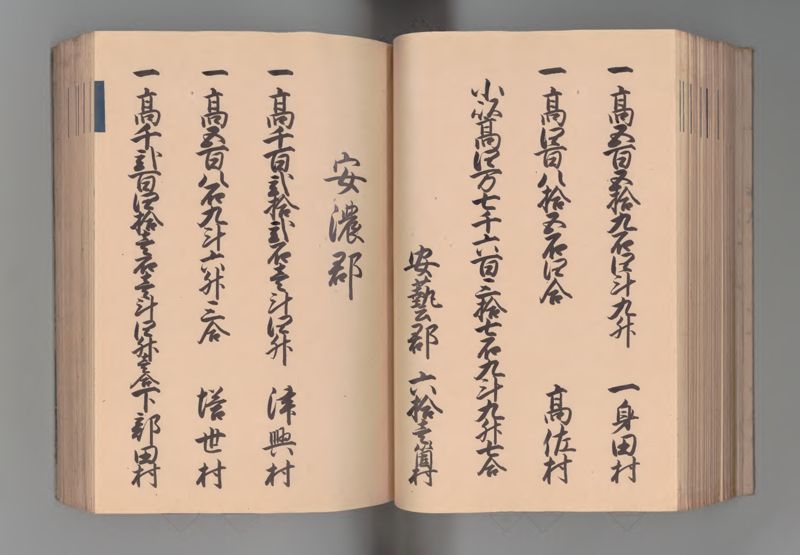 一 高五百五拾九石四斗九升 一身田村
一 高四百八拾五石四合 高佐村
小以高四万七千六百三拾七石九斗九升七合
安藝郡 六拾壱箇村
安濃郡
一 高千百弐拾弐石壱斗四升 津興村
一 高五百八石九斗六升三合 塔世村
一 高千弐百四拾壱石壱斗四升壱合 下部田村